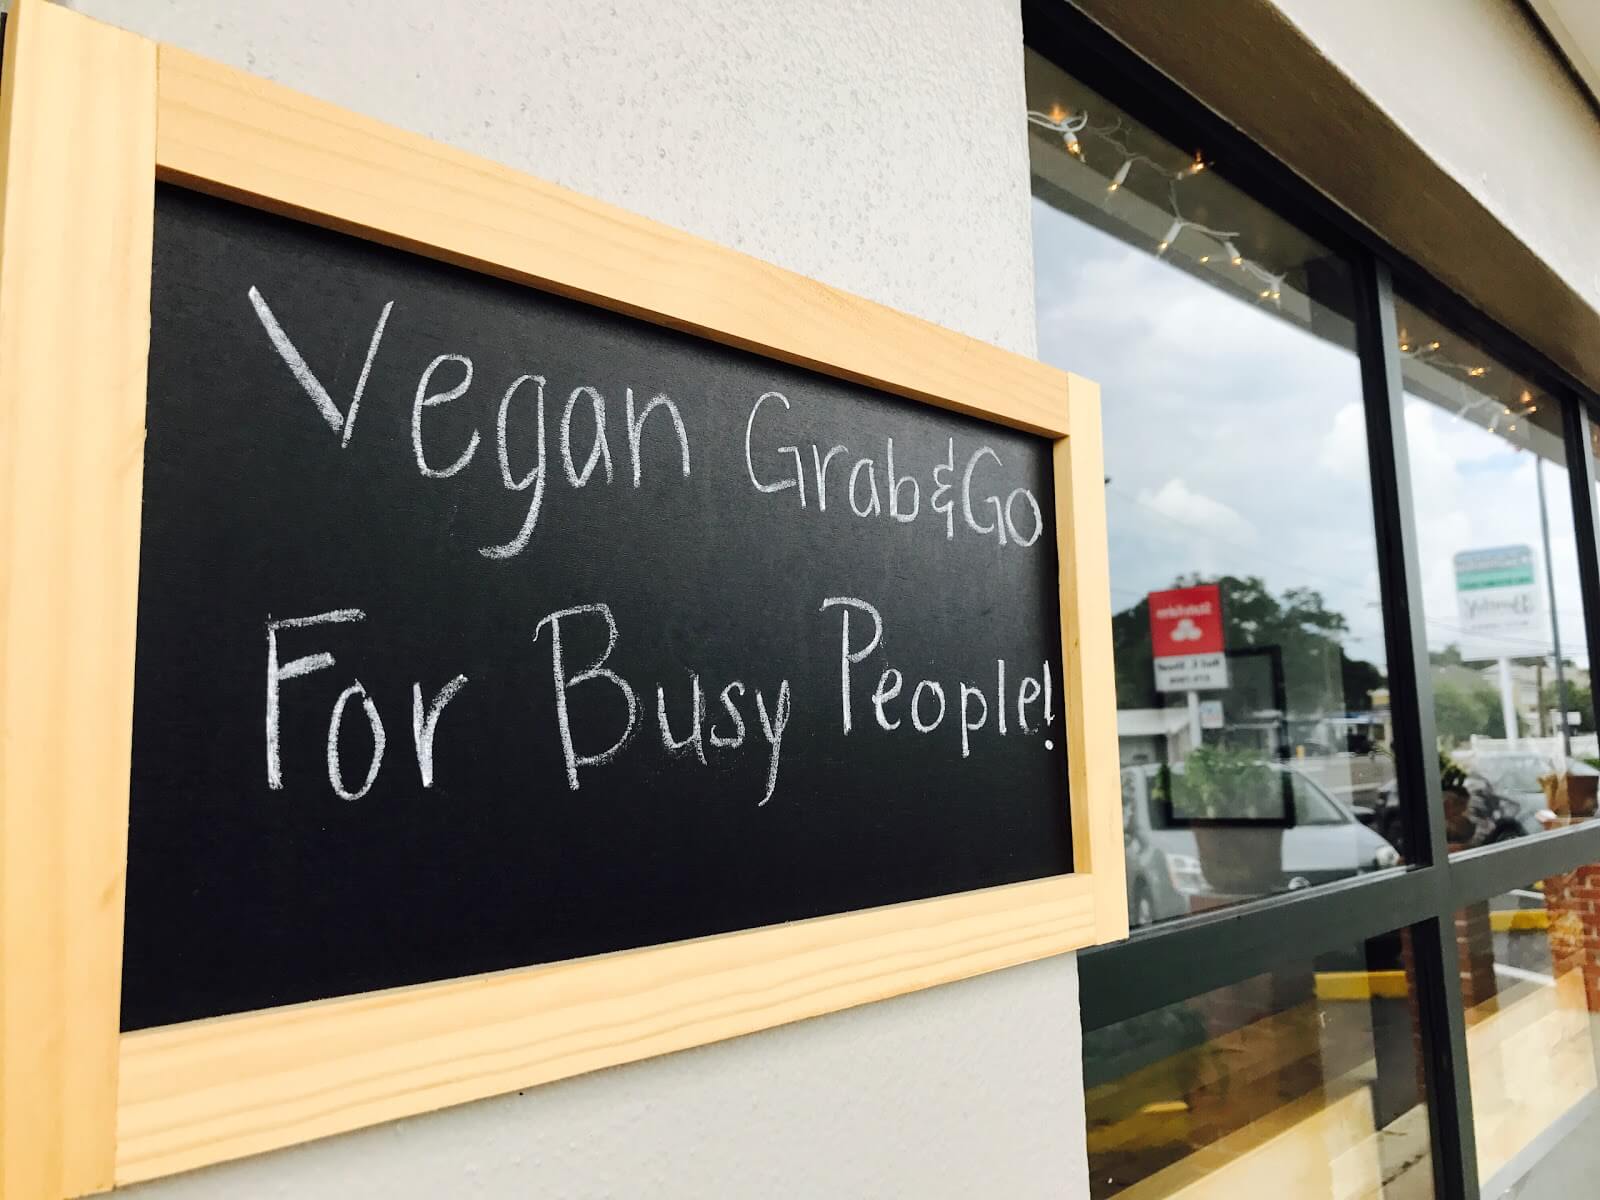 Vegan Grab&Go
For Busy People!
StateFarm